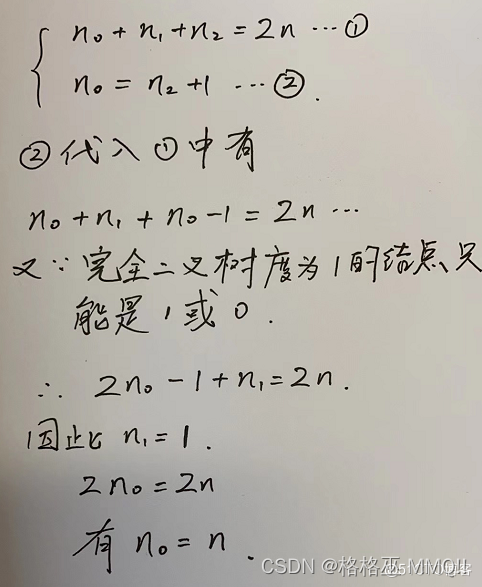 n₀ + n₁ + n₂ = 2n …①
n₀ = n₂ + 1 …②.
②代入①中有
n₀ + n₁ + n₀ - 1 = 2n …
又∵完全二叉树度为1的结点只
能是1或0.
∴ 2n₀ - 1 + n₁ = 2n.
因此 n₁ = 1.
2n₀ = 2n
有 n₀ = n.
CSDN @格格巫 MMQ!!